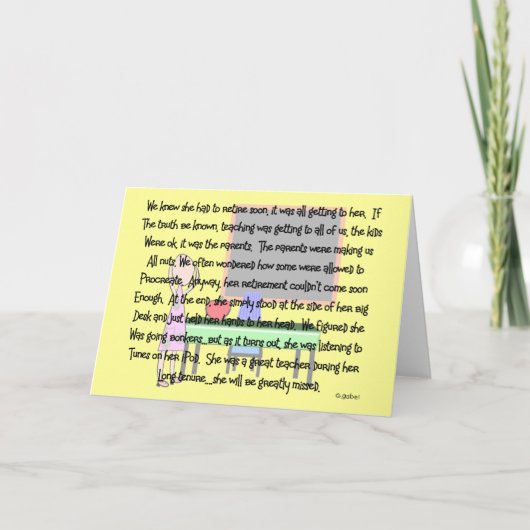 We knew she had to retire soon, it was all getting to her.  If
The truth be known, teaching was getting to all of us, the kids
Were ok, it was the parents.  The parents were making us
All nuts. We often wondered how some were allowed to
Procreate.  Anyway, her retirement couldn't come soon
Enough.  At the end, she simply stood at the side of her big
Desk and just held her hands to her head.  We figured she
Was going bonkers...but as it turns out, she was listening to
Tunes on her iPod.  She was a great teacher during her
Long tenure....she will be greatly missed.
G.gabel